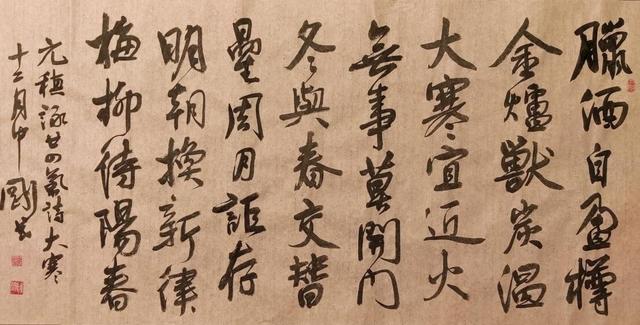 臘酒自盈樽
金爐獸炭温
大寒宜近火
無事莫開門
冬與春交替
星周月詎存
明朝換新律
梅柳待陽春
元稹詠廿四氣詩大寒
十二月中 國